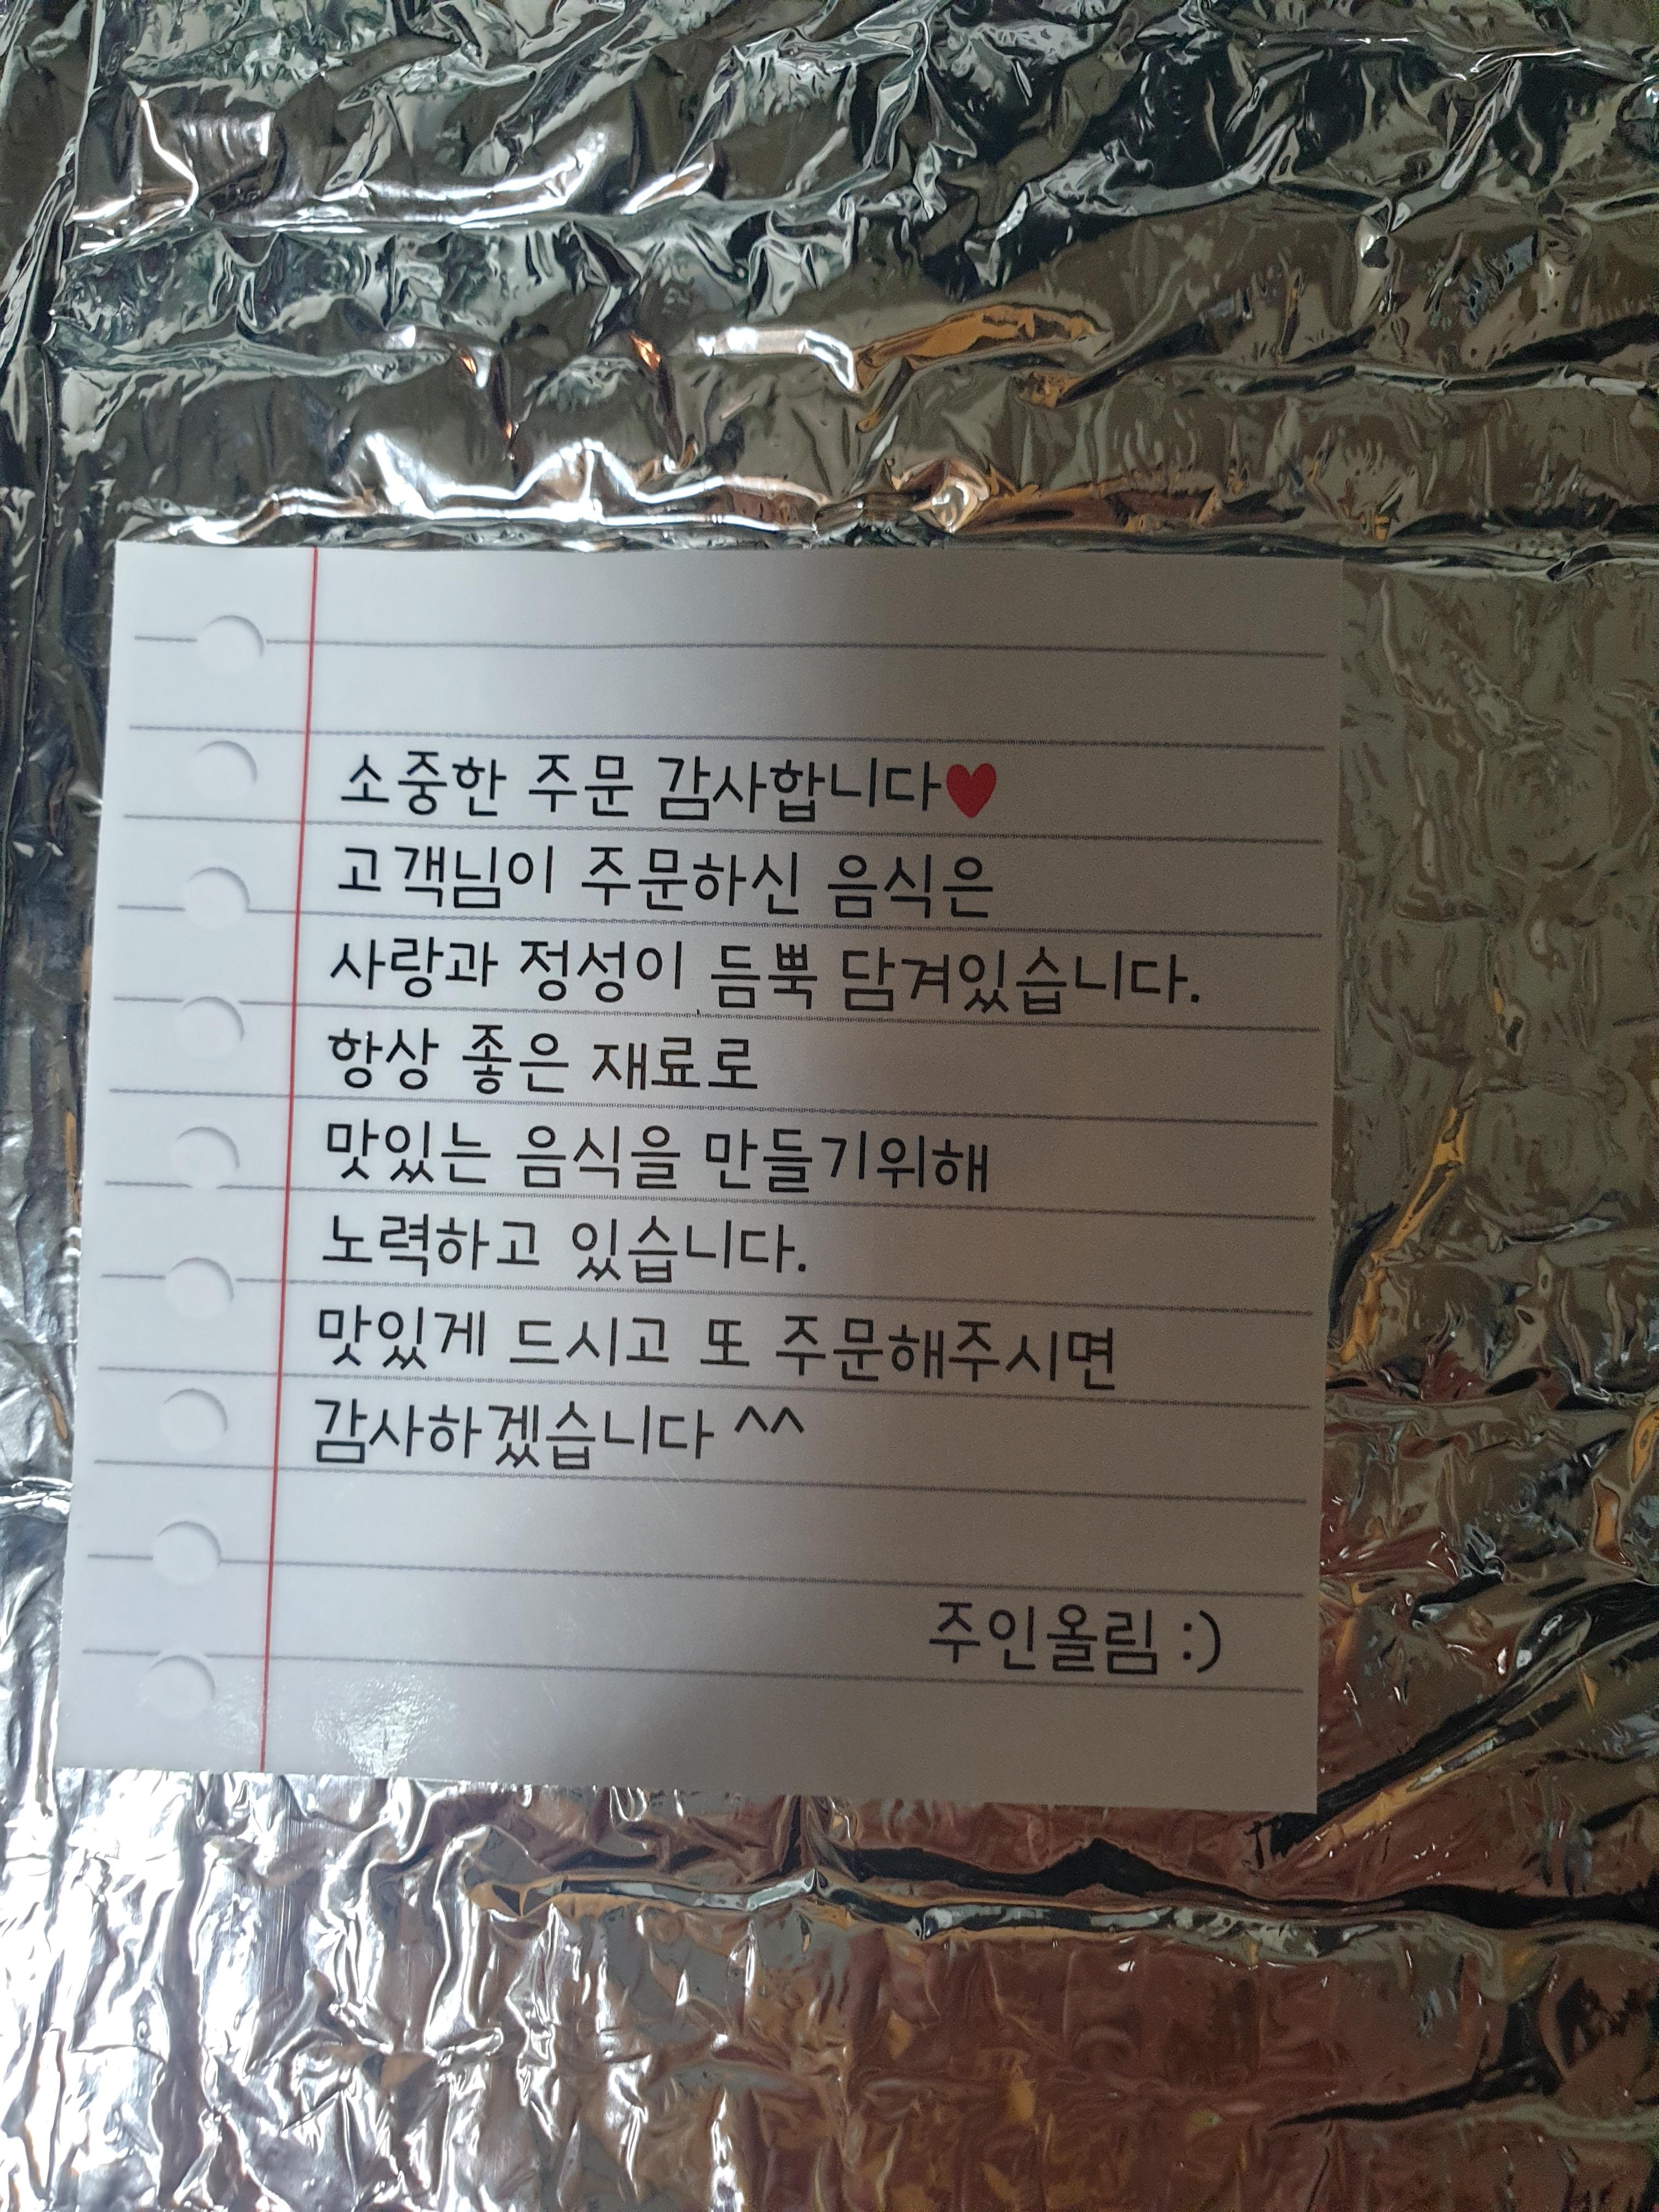 소중한 주문 감사합니다♥
고객님이 주문하신 음식은
사랑과 정성이 듬뿍 담겨있습니다.
항상 좋은 재료로
맛있는 음식을 만들기위해
노력하고 있습니다.
맛있게 드시고 또 주문해주시면
감사하겠습니다 ^^
주인올림 :)